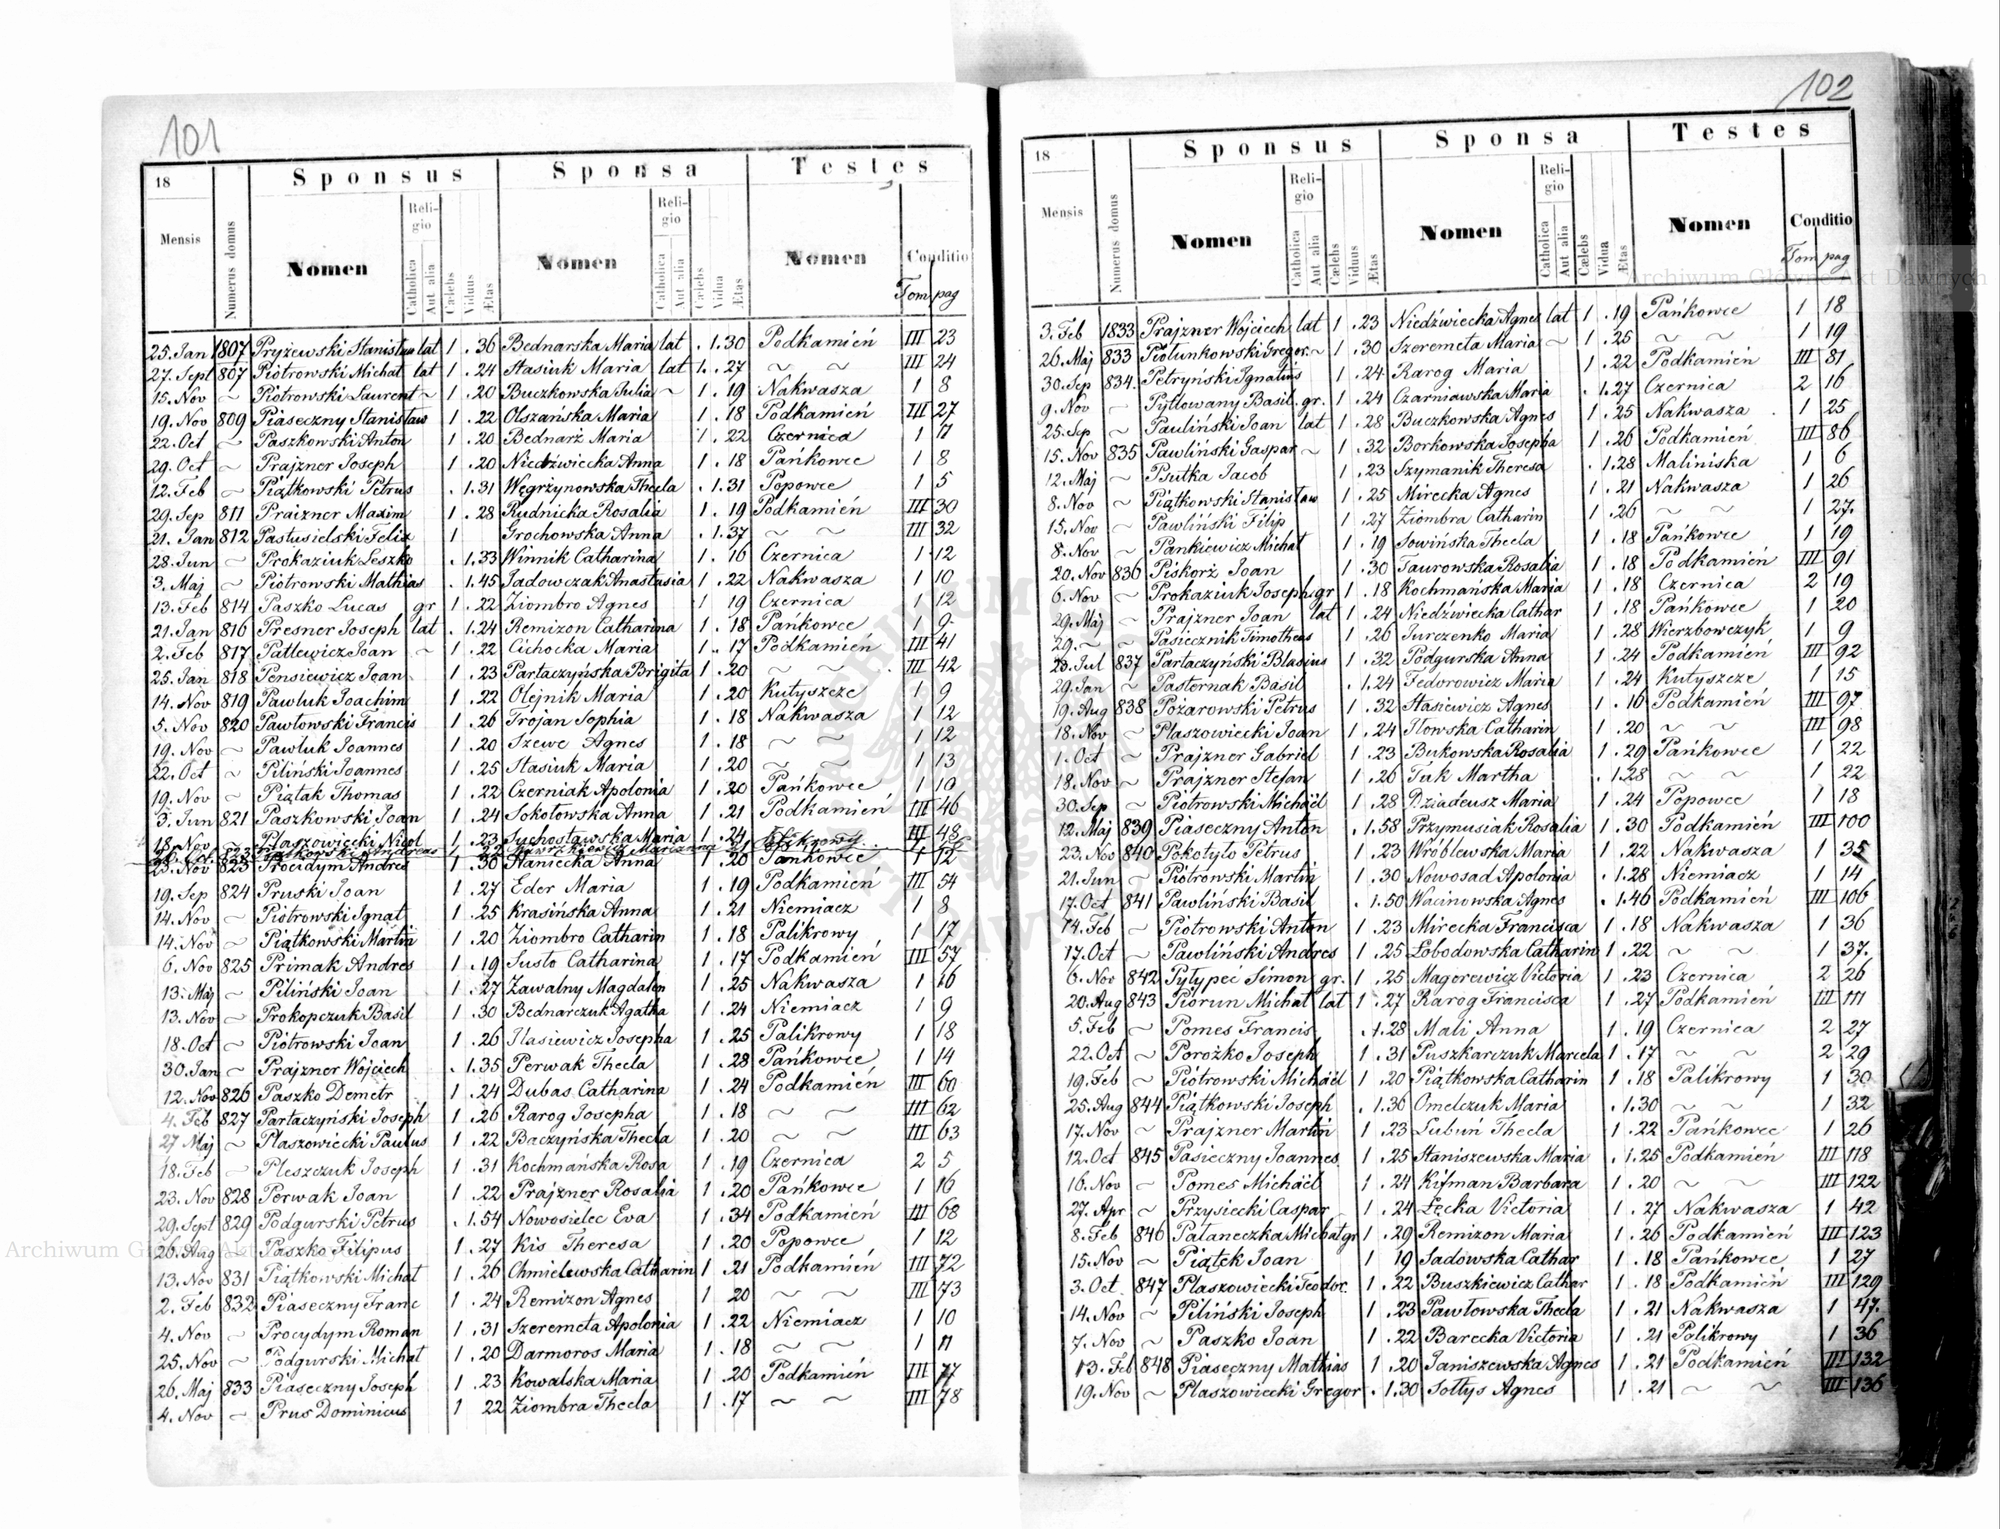 101
Sponsus Sponsa Testes
18 Mensis Numerus domus Nomen Religio Catholica Aut alia Cælebs Viduus Ætas Nomen Religio Catholica Aut alia Cælebs Vidua Ætas Nomen Conditio
Tom pag
25. Jan 1807 Pryżewski Stanisław lat 1 . 36 Bednarska Maria lat . 1. 30 Podkamień III 23
27. Sept 807 Piotrowski Michał lat 1 . 24 Stasiuk Maria lat 1. . 27 ~ ~ III 24
15. Nov ~ Piotrowski Laurent ~ 1 . 20 Buczkowska Julia ~ 1 . 19 Nakwasza 1 8
19. Nov 809 Piaseczny Stanisław 1 . 22 Olszańska Maria 1 . 18 Podkamień III 27
22. Oct ~ Paszkowski Anton 1 . 20 Bednarz Maria 1 . 22 Czernica 1 7
29. Oct ~ Prajzner Joseph 1 . 20 Niedźwiecka Anna 1 . 18 Pańkowce 1 8
12. Feb ~ Piątkowski Petrus . 1. 31 Węgrzynowska Thecla . 1. 31 Popowce 1 5
29. Sep 811 Prajzner Maxim 1 . 28 Rudnicka Rosalia 1 . 19 Podkamień III 30
21. Jan 812 Pastusielski Felix 1 Grochowska Anna . 1. 37 ~ ~ III 32
28. Jun ~ Prokaziuk Leszko . 1. 33 Winnik Catharina 1 . 16 Czernica 1 12
3. Maj ~ Piotrowski Mathias . 1. 45 Sadowczak Anastasia 1 . 22 Nakwasza 1 10
13. Feb 814 Paszko Lucas gr 1 . 22 Ziombro Agnes 1 19 Czernica 1 12
21. Jan 816 Presner Joseph lat . 1. 24 Remizon Catharina 1 . 18 Pańkowce 1 9
2. Feb 817 Patlewicz Joan ~ 1 . 22 Cichocka Maria 1 . 17 Podkamień III 41
25. Jan 818 Pensiewicz Joan 1 . 23 Partaczyńska Brigita 1 . 20 ~ ~ III 42
14. Nov 819 Pawluk Joachim 1 . 22 Olejnik Maria 1 . 20 Kutyszcze 1 9
5. Nov 820 Pawłowski Francis 1 . 26 Trojan Sophia 1 . 18 Nakwasza 1 12
19. Nov ~ Pawluk Joannes 1 . 20 Szewc Agnes 1 . 18 ~ ~ 1 12
22. Oct ~ Piliński Joannes 1 . 25 Stasiuk Maria 1 . 20 ~ ~ 1 13
19. Nov ~ Piątak Thomas 1 . 22 Czerniak Apolonia 1 . 20 Pańkowce 1 10
3. Jun 821 Paszkowski Joan 1 . 24 Sokołowska Anna 1 . 21 Podkamień III 46
18. Nov Płaszowiecki Nicol 1 . 23 Suchosławska Maria 1 . 24 III 48
23. Nov 823 Procidym Andres 1 . 30 Staniecka Anna 1 . 20 Pańkowce 1 12
19. Sep 824 Pruski Joan 1 . 27 Eder Maria 1 . 19 Podkamień III 54
14. Nov ~ Piotrowski Ignat 1 . 25 Krasińska Anna 1 . 21 Niemiacz 1 8
14. Nov ~ Piątkowski Martin 1 . 20 Ziombro Catharin 1 . 18 Palikrowy 1 17
6. Nov 825 Primak Andres 1 . 19 Susło Catharina 1 . 17 Podkamień III 57
13. Maj ~ Piliński Joan 1 . 27 Zawalny Magdalen 1 . 25 Nakwasza 1 16
13. Nov ~ Prokopczuk Basil 1 . 30 Bednarczuk Agatha 1 . 24 Niemiacz 1 9
18. Oct ~ Piotrowski Joan 1 . 26 Stasiewicz Josepha 1 . 25 Palikrowy 1 18
30. Jan ~ Prajzner Wojciech . 1. 35 Perwak Thecla 1 . 28 Pańkowce 1 14
12. Nov 826 Paszko Demetr 1 . 24 Dubas Catharina 1 . 24 Podkamień III 60
4. Feb 827 Partaczyński Joseph 1 . 26 Karog Josepha 1 . 18 ~ ~ III 62
27 Maj ~ Płaszowiecki Paulus 1 . 22 Baczyńska Thecla 1 . 20 ~ ~ III 63
18. Feb ~ Pleszczuk Joseph 1 . 31 Kochmańska Rosa 1 . 19 Czernica 2 5
23. Nov 828 Perwak Joan 1 . 22 Prajzner Rosalia 1 . 20 Pańkowce 1 16
29. Sept 829 Podgurski Petrus . 1. 54 Nowosielec Eva 1 . 34 Podkamień III 68
26. Aug ~ Paszko Filipus 1 . 27 Kis Theresa 1 . 20 Popowce 1 12
13. Nov 831 Piątkowski Michał 1 . 26 Chmielewska Catharin 1 . 21 Podkamień III 72
2. Feb 832 Piaseczny Franc 1 . 24 Remizon Agnes 1 20 ~ ~ III 73
4. Nov ~ Procydym Roman 1 . 31 Szeremeta Apolonia 1 . 22 Niemiacz 1 10
25. Nov ~ Podgurski Michał 1 . 20 Darmoros Maria 1 . 18 ~ ~ 1 11
26. Maj 833 Piaseczny Joseph 1 . 23 Kowalska Maria 1 . 20 Podkamień III 77
4. Nov ~ Prus Dominicus 1 22 Ziombra Thecla 1 . 17 ~ ~ III 78
102
Sponsus Sponsa Testes
18 Mensis Numerus domus Nomen Religio Catholica Aut alia Cælebs Viduus Ætas Nomen Religio Catholica Aut alia Cælebs Vidua Ætas Nomen Conditio
Tom pag
3. Feb 1833 Prajzner Wojciech lat 1 . 23 Niedźwiecka Agnes lat 1 . 19 Pańkowce 1 18
26. Maj 833 Piotunkowski Gregor. ~ 1 . 30 Szeremeta Maria ~ 1 . 25 ~ ~ 1 19
30. Sep 834 Petryński Ignatius 1 . 24 Karog Maria 1 . 22 Podkamień III 81
9. Nov ~ Pytlowany Basil gr. 1 . 24 Czarniawska Maria . 1. 27 Czernica 2 16
25. Sep ~ Pauliński Joan lat 1 . 28 Buczkowska Agnes 1 . 25 Nakwasza 1 25
15. Nov 835 Pawliński Gaspar ~ 1 . 32 Borkowska Josepha 1 . 26 Podkamień III 86
12. Maj ~ Psutka Jacob 1 . 23 Szymanik Theresa . 1. 28 Maliniska 1 6
8. Nov ~ Piątkowski Stanisław 1 . 25 Mirecka Agnes 1 . 21 Nakwasza 1 26
15. Nov ~ Pawliński Filip 1 . 27 Ziombra Catharin 1 . 26 ~ ~ 1 27.
8. Nov ~ Pankiewicz Michał 1 . 19 Sowińska Thecla 1 . 18 Pańkowce 1 19
20. Nov 836 Piskorż Joan 1 . 30 Taurowska Rosalia 1 . 18 Podkamień III 91
6. Nov ~ Prokaziuk Joseph gr 1 . 18 Kochmańska Maria 1 . 18 Czernica 2 19
29. Maj ~ Prajzner Joan lat 1 . 24 Niedźwiecka Cathar 1 . 18 Pańkowce 1 20
29. ~ ~ Pasiecznik Timotheus 1 . 26 Jurczenko Maria 1 . 28 Wierzbowczyk 1 9
23. Jul 837 Partaczyński Blasius 1 . 32 Podgurska Anna 1 . 24 Podkamień III 92
29. Jan ~ Pasternak Basil . 1. 24 Fedorowicz Maria 1 . 24 Kutyszcze 1 15
19. Aug 838 Pożarowski Petrus 1 . 32 Stasiewicz Agnes 1 . 16 Podkamień III 97
18. Nov ~ Płaszowiecki Joan 1 . 24 Iłowska Catharin 1 . 20 ~ ~ III 98
1. Oct ~ Prajzner Gabriel 1 . 23 Bukowska Rosalia 1 . 29 Pańkowce 1 22
18. Nov ~ Prajzner Stefan 1 . 26 Tuk Martha . 1. 28 ~ ~ 1 22
30. Sep ~ Piotrowski Michäel 1 . 28 Dziadeusz Maria 1 . 24 Popowce 1 18
12. Maj 839 Piaseczny Anton . 1. 58 Przymusiak Rosalia 1 . 30 Podkamień III 100
23. Nov 840 Pokotyło Petrus 1 . 23 Wróblewska Maria 1 . 22 Nakwasza 1 35
21. Jun ~ Piotrowski Martin 1 . 30 Nowosad Apolonia . 1. 28 Niemiacz 1 14
17. Oct 841 Pawliński Basil . 1. 50 Wacinowska Agnes . 1. 46 Podkamień III 106
14. Feb ~ Piotrowski Anton 1 . 23 Mirecka Francisca 1 . 18 Nakwasza 1 36
17. Oct ~ Pawliński Andres 1 . 25 Łobodowska Catharin 1 . 22 ~ ~ 1 37.
6. Nov 842 Pytypeć Simon gr. 1 . 25 Magerewicz Victoria 1 . 23 Czernica 2 26
20. Aug 843 Piorun Michał lat 1 . 27 Karog Francisca 1 . 27 Podkamień III 111
5. Feb ~ Pomes Francis . 1. 28 Mali Anna 1 . 19 Czernica 2 27
22. Oct ~ Porożko Joseph 1 . 31 Puszkarczuk Marcela 1 . 17 ~ ~ 2 29
19. Feb ~ Piotrowski Michäel 1 . 20 Piątkowska Catharin 1 . 18 Palikrowy 1 30
25. Aug 844 Piątkowski Joseph . 1. 36 Omelczuk Maria . 1. 30 ~ ~ 1 32
17. Nov ~ Prajzner Martin 1 . 23 Łubuń Thecla 1 . 22 Pańkowce 1 26
12. Oct 845 Pasieczny Joannes 1 . 25 Staniszewska Maria . 1. 25 Podkamień III 118
16. Nov ~ Pomes Michäel 1 . 24 Kifman Barbara 1 . 20 ~ ~ III 122
27. Apr ~ Przysiecki Caspar 1 . 24 Łęcka Victoria 1 . 27 Nakwasza 1 42
8. Feb 846 Palaneczka Michał gr 1 . 29 Remizon Maria 1 . 26 Podkamień III 123
15. Nov ~ Piątek Joan 1 19 Sadowska Cathar 1 . 18 Pańkowce 1 27
3. Oct 847 Płaszowiecki Teodor. 1 . 22 Buszkiewicz Cathar 1 . 18 Podkamień III 129
14. Nov ~ Piliński Joseph 1 . 23 Pawłowska Thecla 1 . 21 Nakwasza 1 47.
7. Nov ~ Paszko Joan 1 . 22 Barecka Victoria 1 . 21 Palikrowy 1 36
13. Feb 848 Piaseczny Mathias 1 . 20 Janiszewska Agnes 1 . 21 Podkamień III 132
19. Nov ~ Płaszowiecki Gregor . 1. 30 Sołtys Agnes 1 . 21 ~ ~ III 136
Archiwum Główne Akt Dawnych